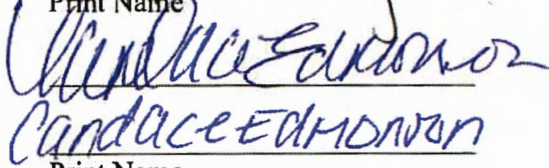 Print Name
Candace Edmonson
Candace Edmonson
Print Name